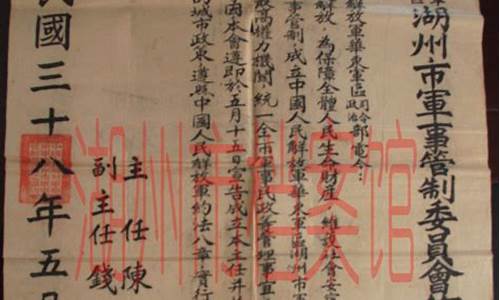 湖州市軍事管制委員會
解放軍華東軍區司令部政治部電令:
解放,為保障全體人民生命財產,維護社會安
事管制,成立中國人民解放軍華東軍區湖州市軍
最高權力機關,統一全市軍事民政等管理事宜
因本會遵即於五月十五日宣告成立本主任
的城市政策遵照中國人民解放軍約法八章,實行
主任 陳
副主任 錢
民國三十八年五月
湖州市档案馆